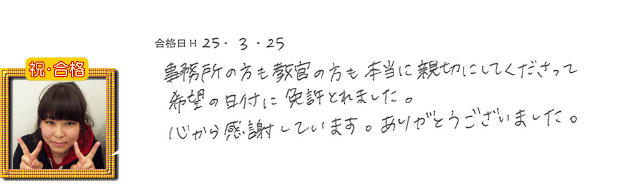 合格日 H 25・3・25
祝・合格
事務所の方も教官の方も本当に親切にしてくださって
希望の日付に免許とれました。
心から感謝しています。ありがとうございました。